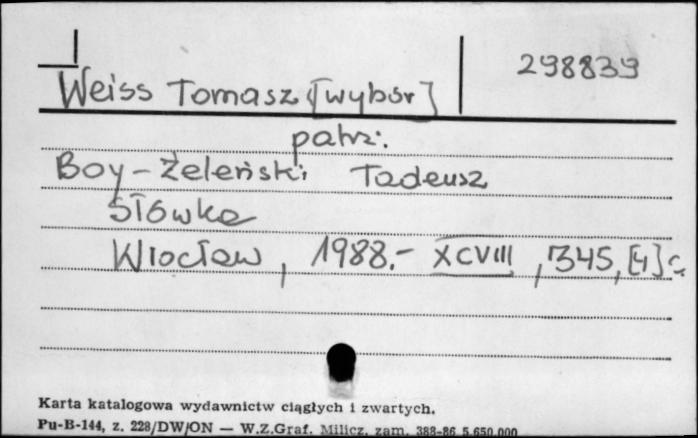 298839
Weiss Tomasz [wybór]
patrz:
Boy-Żeleński Tadeusz
Słówka
Wrocław, 1988.- XCVIII, 345, [4] s.
Karta katalogowa wydawnictw ciągłych i zwartych.
Pu-B-144, z. 228/DW/ON — W.Z.Graf. Milicz, zam. 388-86 5.650.000